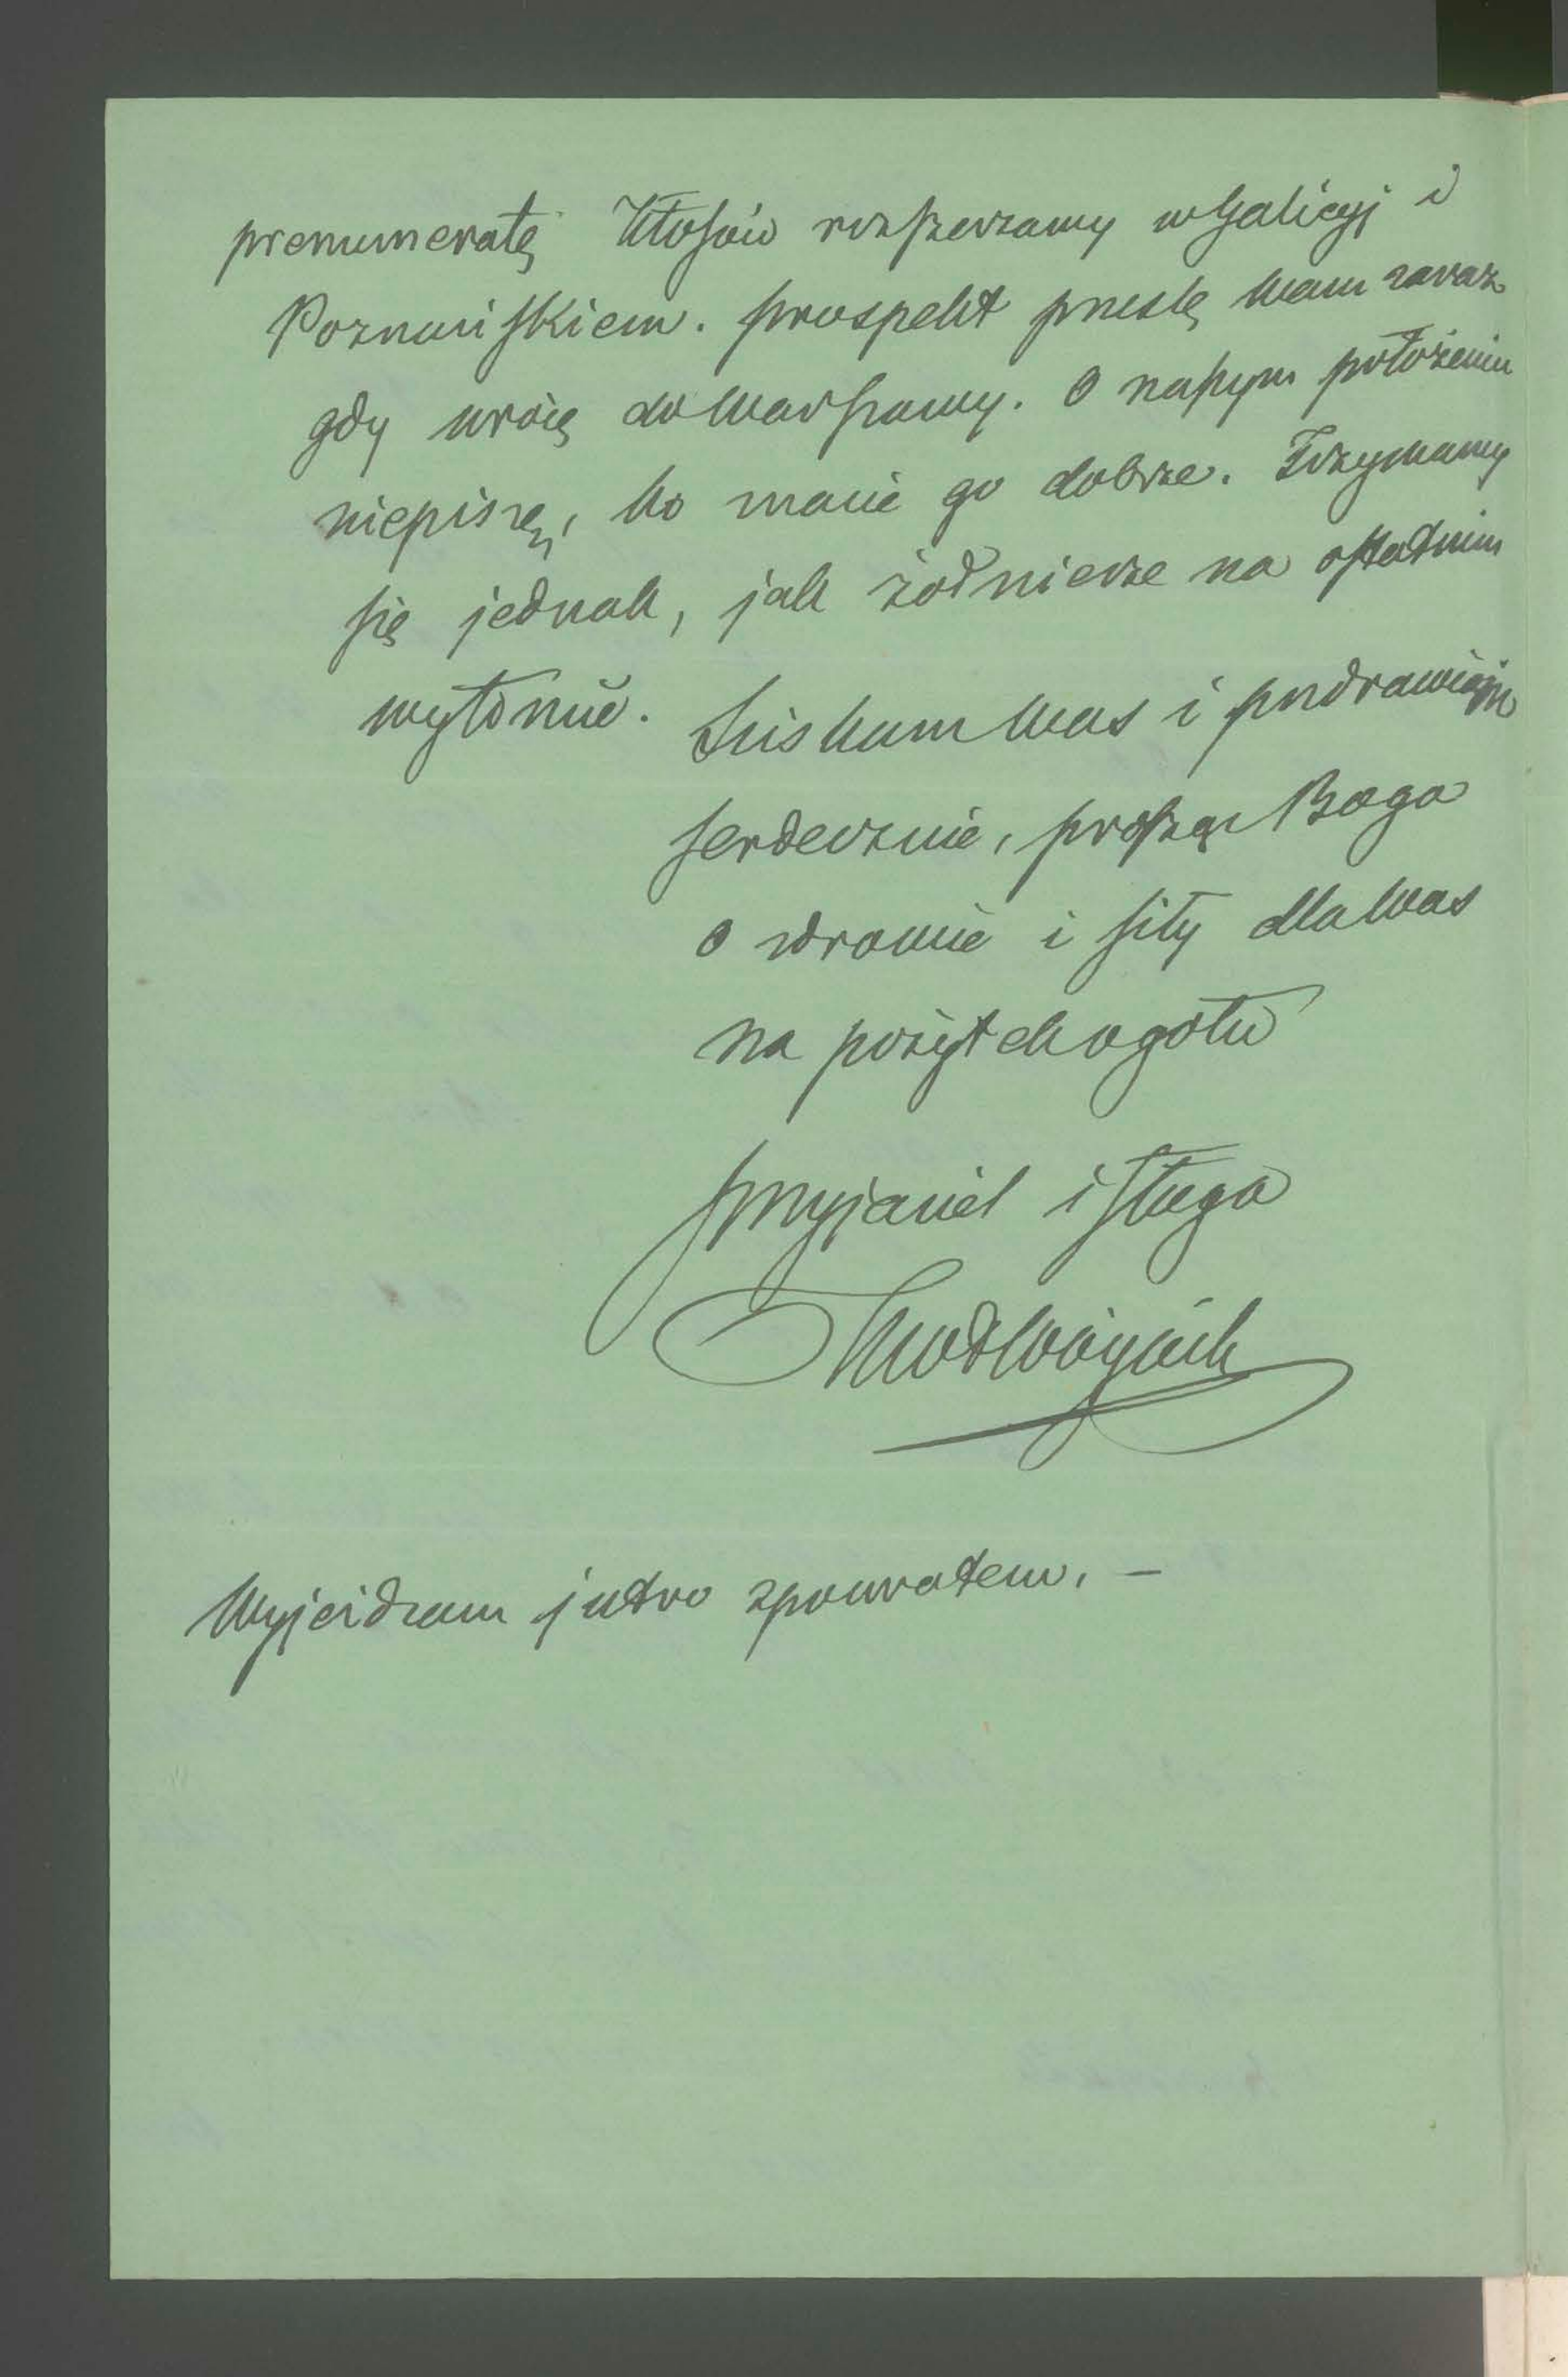 prenumeratę Kłosów rozszerzamy w Galicyj i
Poznańskiem. Prospekt prześlę Wam zaraz
gdy wrócę do Warszawy. O naszym położeniu
niepiszę, bo znacie go dobrze. Trzymamy
się jednak, jak żołnierze na ostatnim
wyłomie. Ściskam Was i pozdrawiam
serdecznie, prosząc Boga
o zdrowie i siły dla Was
na pożytek ogółu
przyjaciel i sługa
KWł Wójcicki
Wyjeżdzam jutro zpowrotem. –